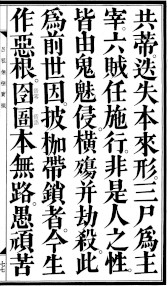 共蒂迭失本來形三尸爲主
宰六賊任施行非是人之性
皆由鬼魅侵橫殤并劫殺此
爲前世因披枷帶鎖者今生
作惡根囹圄本無路愚頑苦
七七